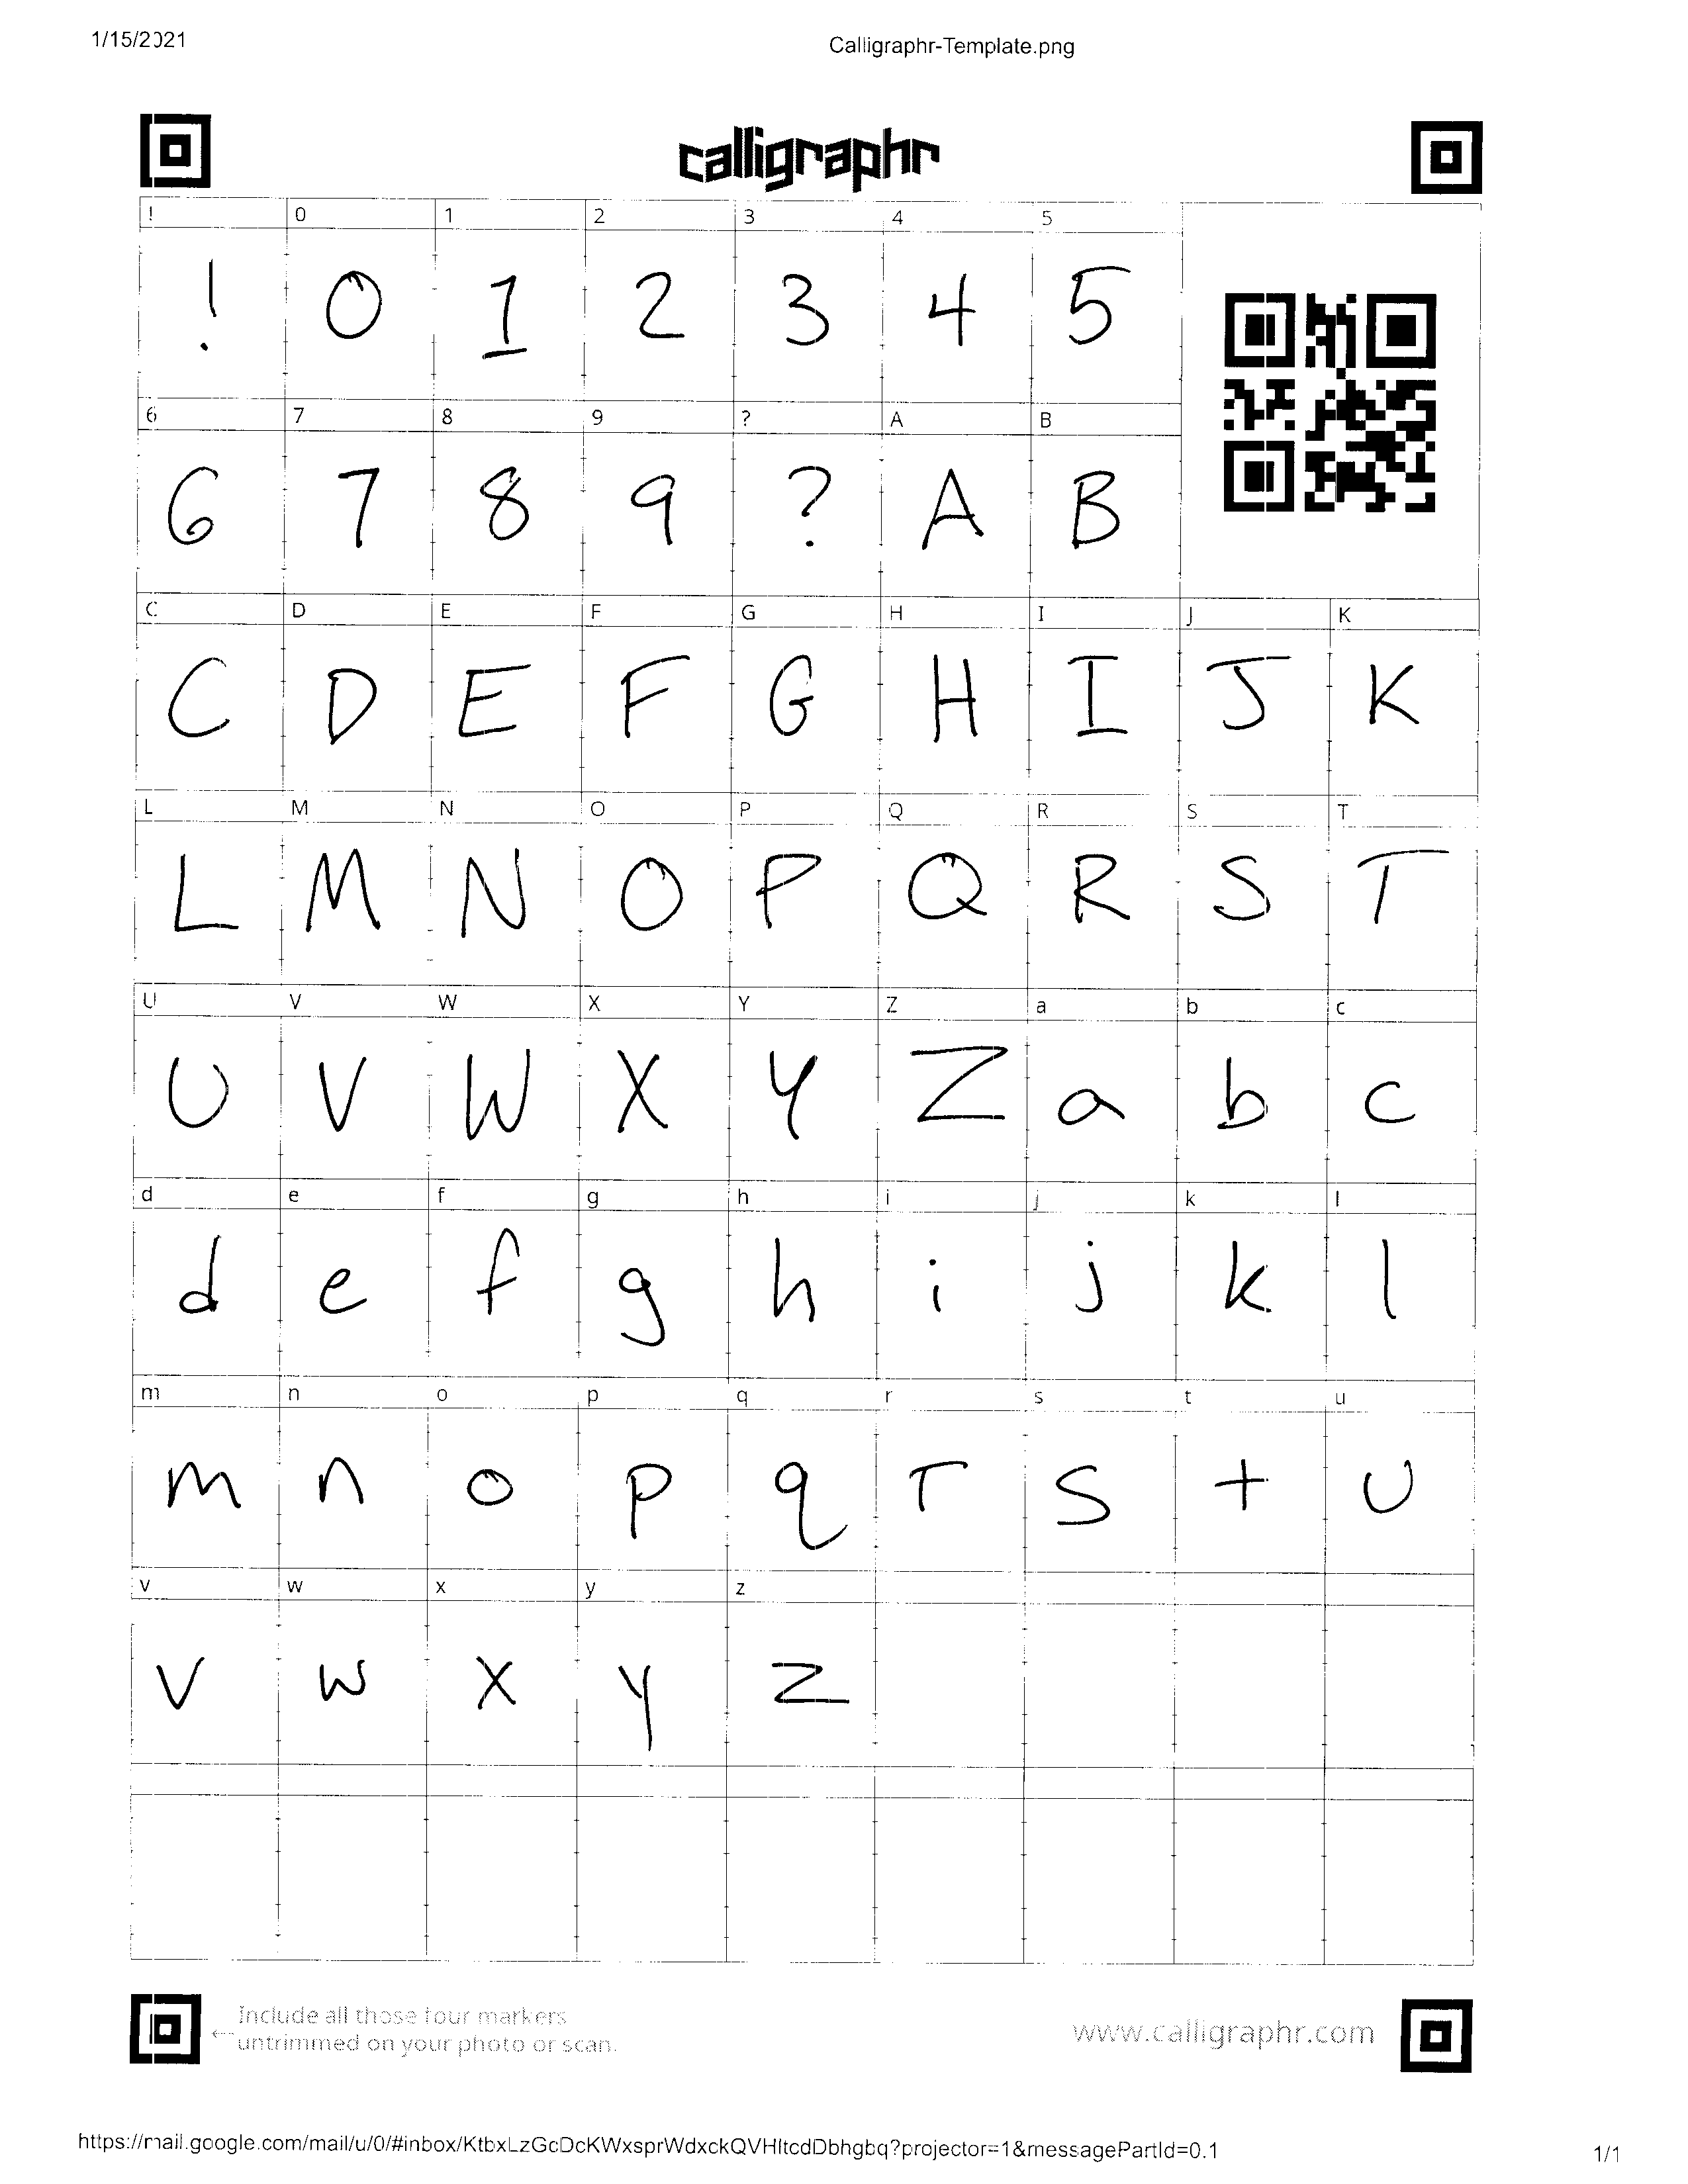 1/15/2021 Calligraphr-Template.png
calligraphr
! 0 1 2 3 4 5
! 0 1 2 3 4 5
6 7 8 9 ? A B
6 7 8 9 ? A B
C D E F G H I J K
C D E F G H I J K
L M N O P Q R S T
L M N O P Q R S T
U V W X Y Z a b c
U V W X Y Z a b c
d e f g h i j k l
d e f g h i j k l
m n o p q r s t u
m n o p q r s t u
v w x y z
v w x y z
Include all those four markers
←untrimmed on your photo or scan.
www.calligraphr.com
https://mail.google.com/mail/u/0/#inbox/KtbxLzGcDcKWxsprWdxckQVHltcdDbhgbq?projector=1&messagePartId=0.1 1/1